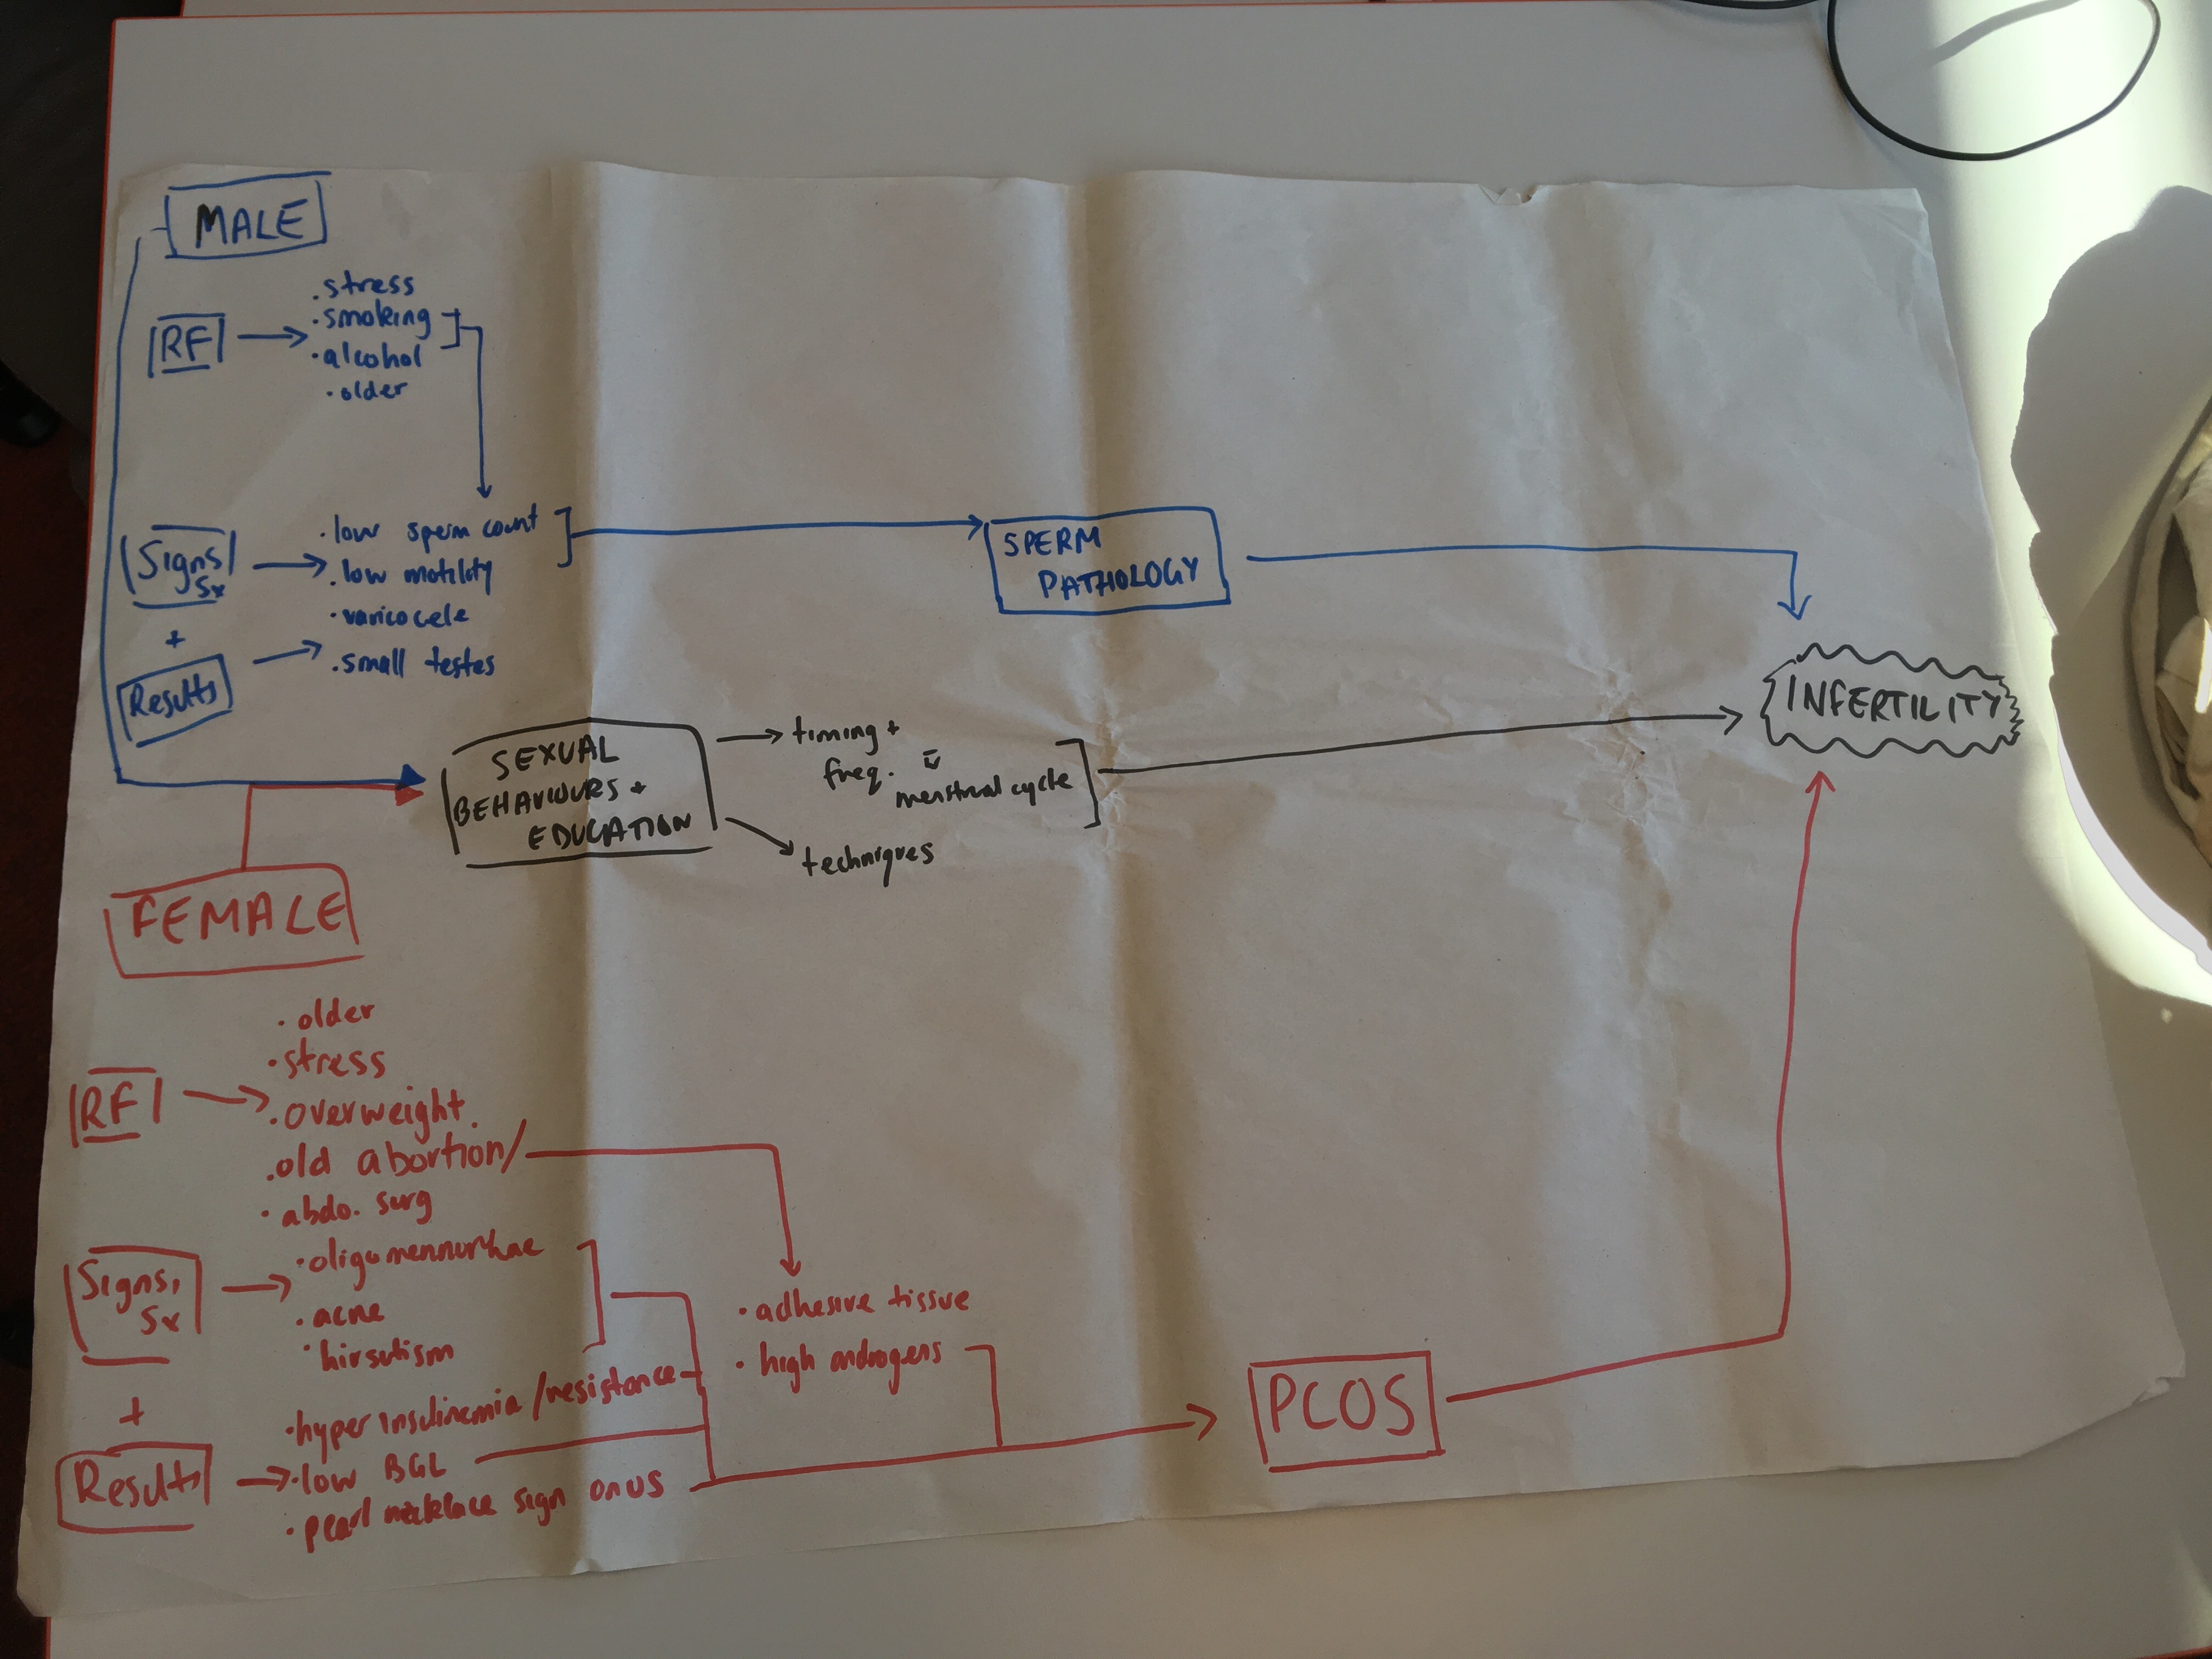 MALE
RF
. stress
. smoking
. alcohol
. older
Signs
Sx
+
Results
. low sperm count
. low motility
. varicocele
. small testes
SPERM
PATHOLOGY
INFERTILITY
SEXUAL
BEHAVIOURS +
EDUCATION
timing +
freq.
menstrual cycle
techniques
FEMALE
RF
. older
. stress
. overweight
. old abortion/
. abdo. surg
Signs,
Sx
+
Results
. acne
. hirsutism
. hyperinsulinemia/resistance
. low BGL
. pearl necklace sign on US
. adhesive tissue
. high androgens
PCOS